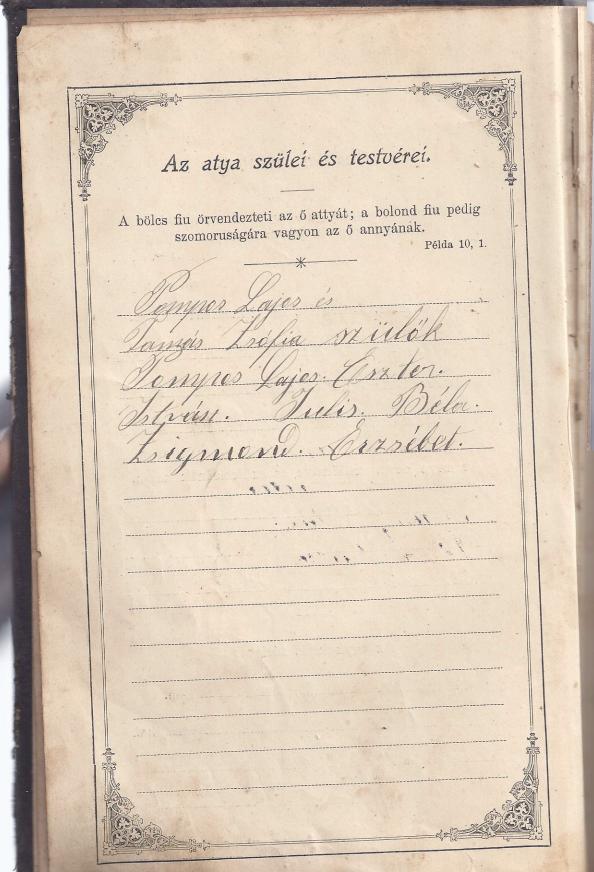 Az atya szülei és testvérei.
A bölcs fiu örvendezteti az ő attyát; a bolond fiu pedig
szomoruságára vagyon az ő annyának.
Példa 10, 1.
Pompos Lajos és
Zsófia szülők
Pompos Lajos. Eszter.
István. Julis. Béla.
Zsigmond. Erzsébet.